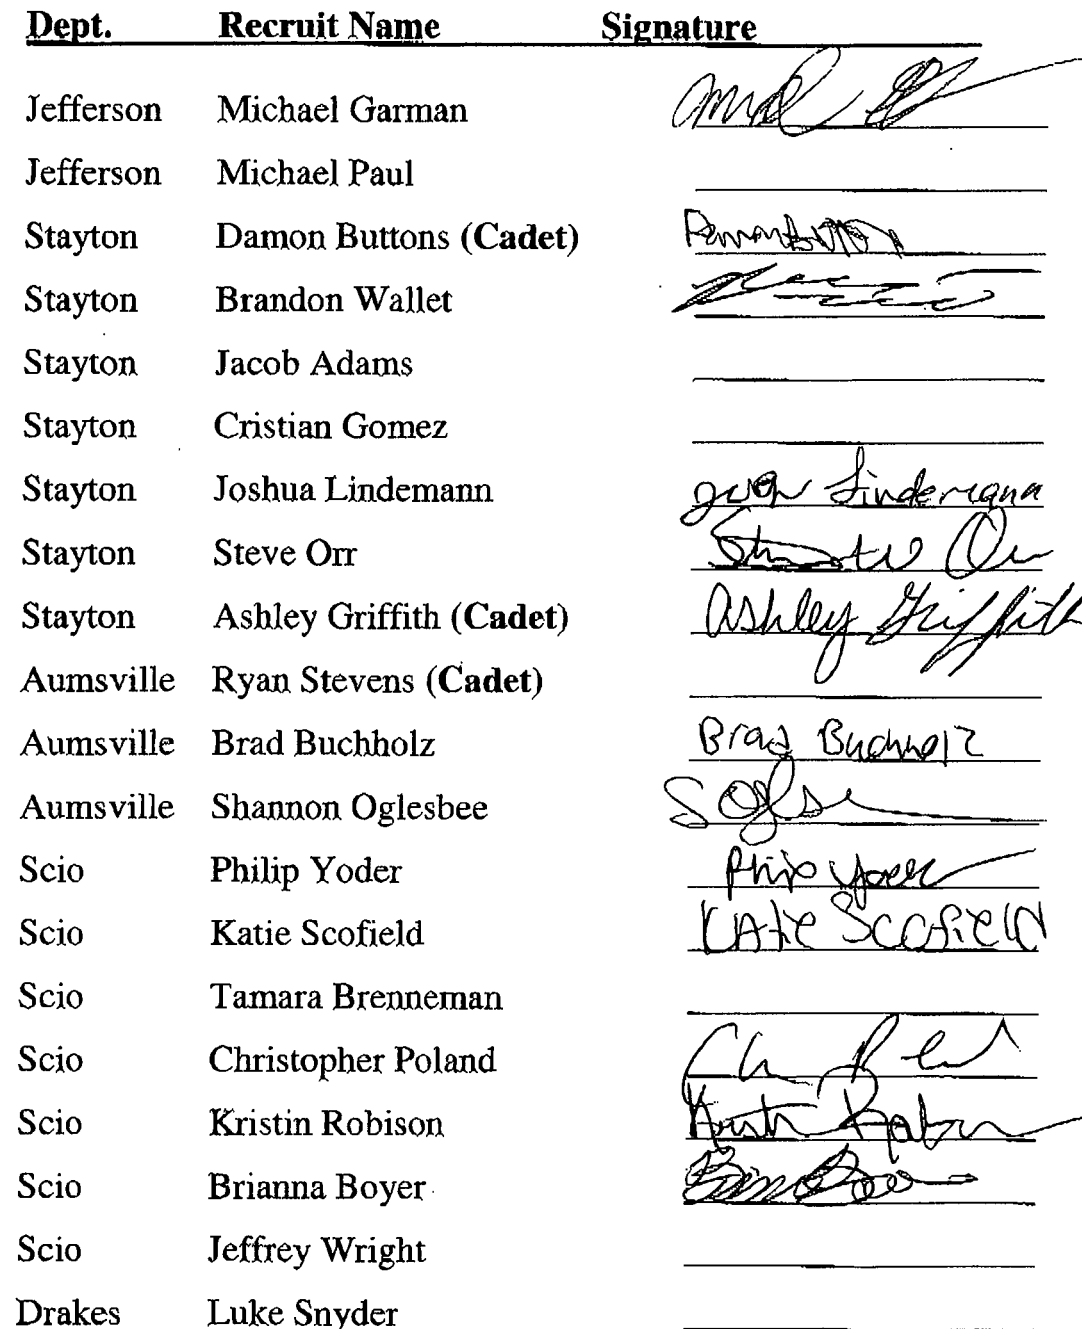 Dept. Recruit Name Signature
Jefferson Michael Garman
Jefferson Michael Paul
Stayton Damon Buttons (Cadet) Damon Buttons
Stayton Brandon Wallet
Stayton Jacob Adams
Stayton Cristian Gomez
Stayton Joshua Lindemann Lindemann
Stayton Steve Orr Orr
Stayton Ashley Griffith (Cadet) Ashley Griffith
Aumsville Ryan Stevens (Cadet)
Aumsville Brad Buchholz Brad Buchholz
Aumsville Shannon Oglesbee
Scio Philip Yoder Philip Yoder
Scio Katie Scofield KAtie Scofield
Scio Tamara Brenneman
Scio Christopher Poland
Scio Kristin Robison
Scio Brianna Boyer
Scio Jeffrey Wright
Drakes Luke Snyder